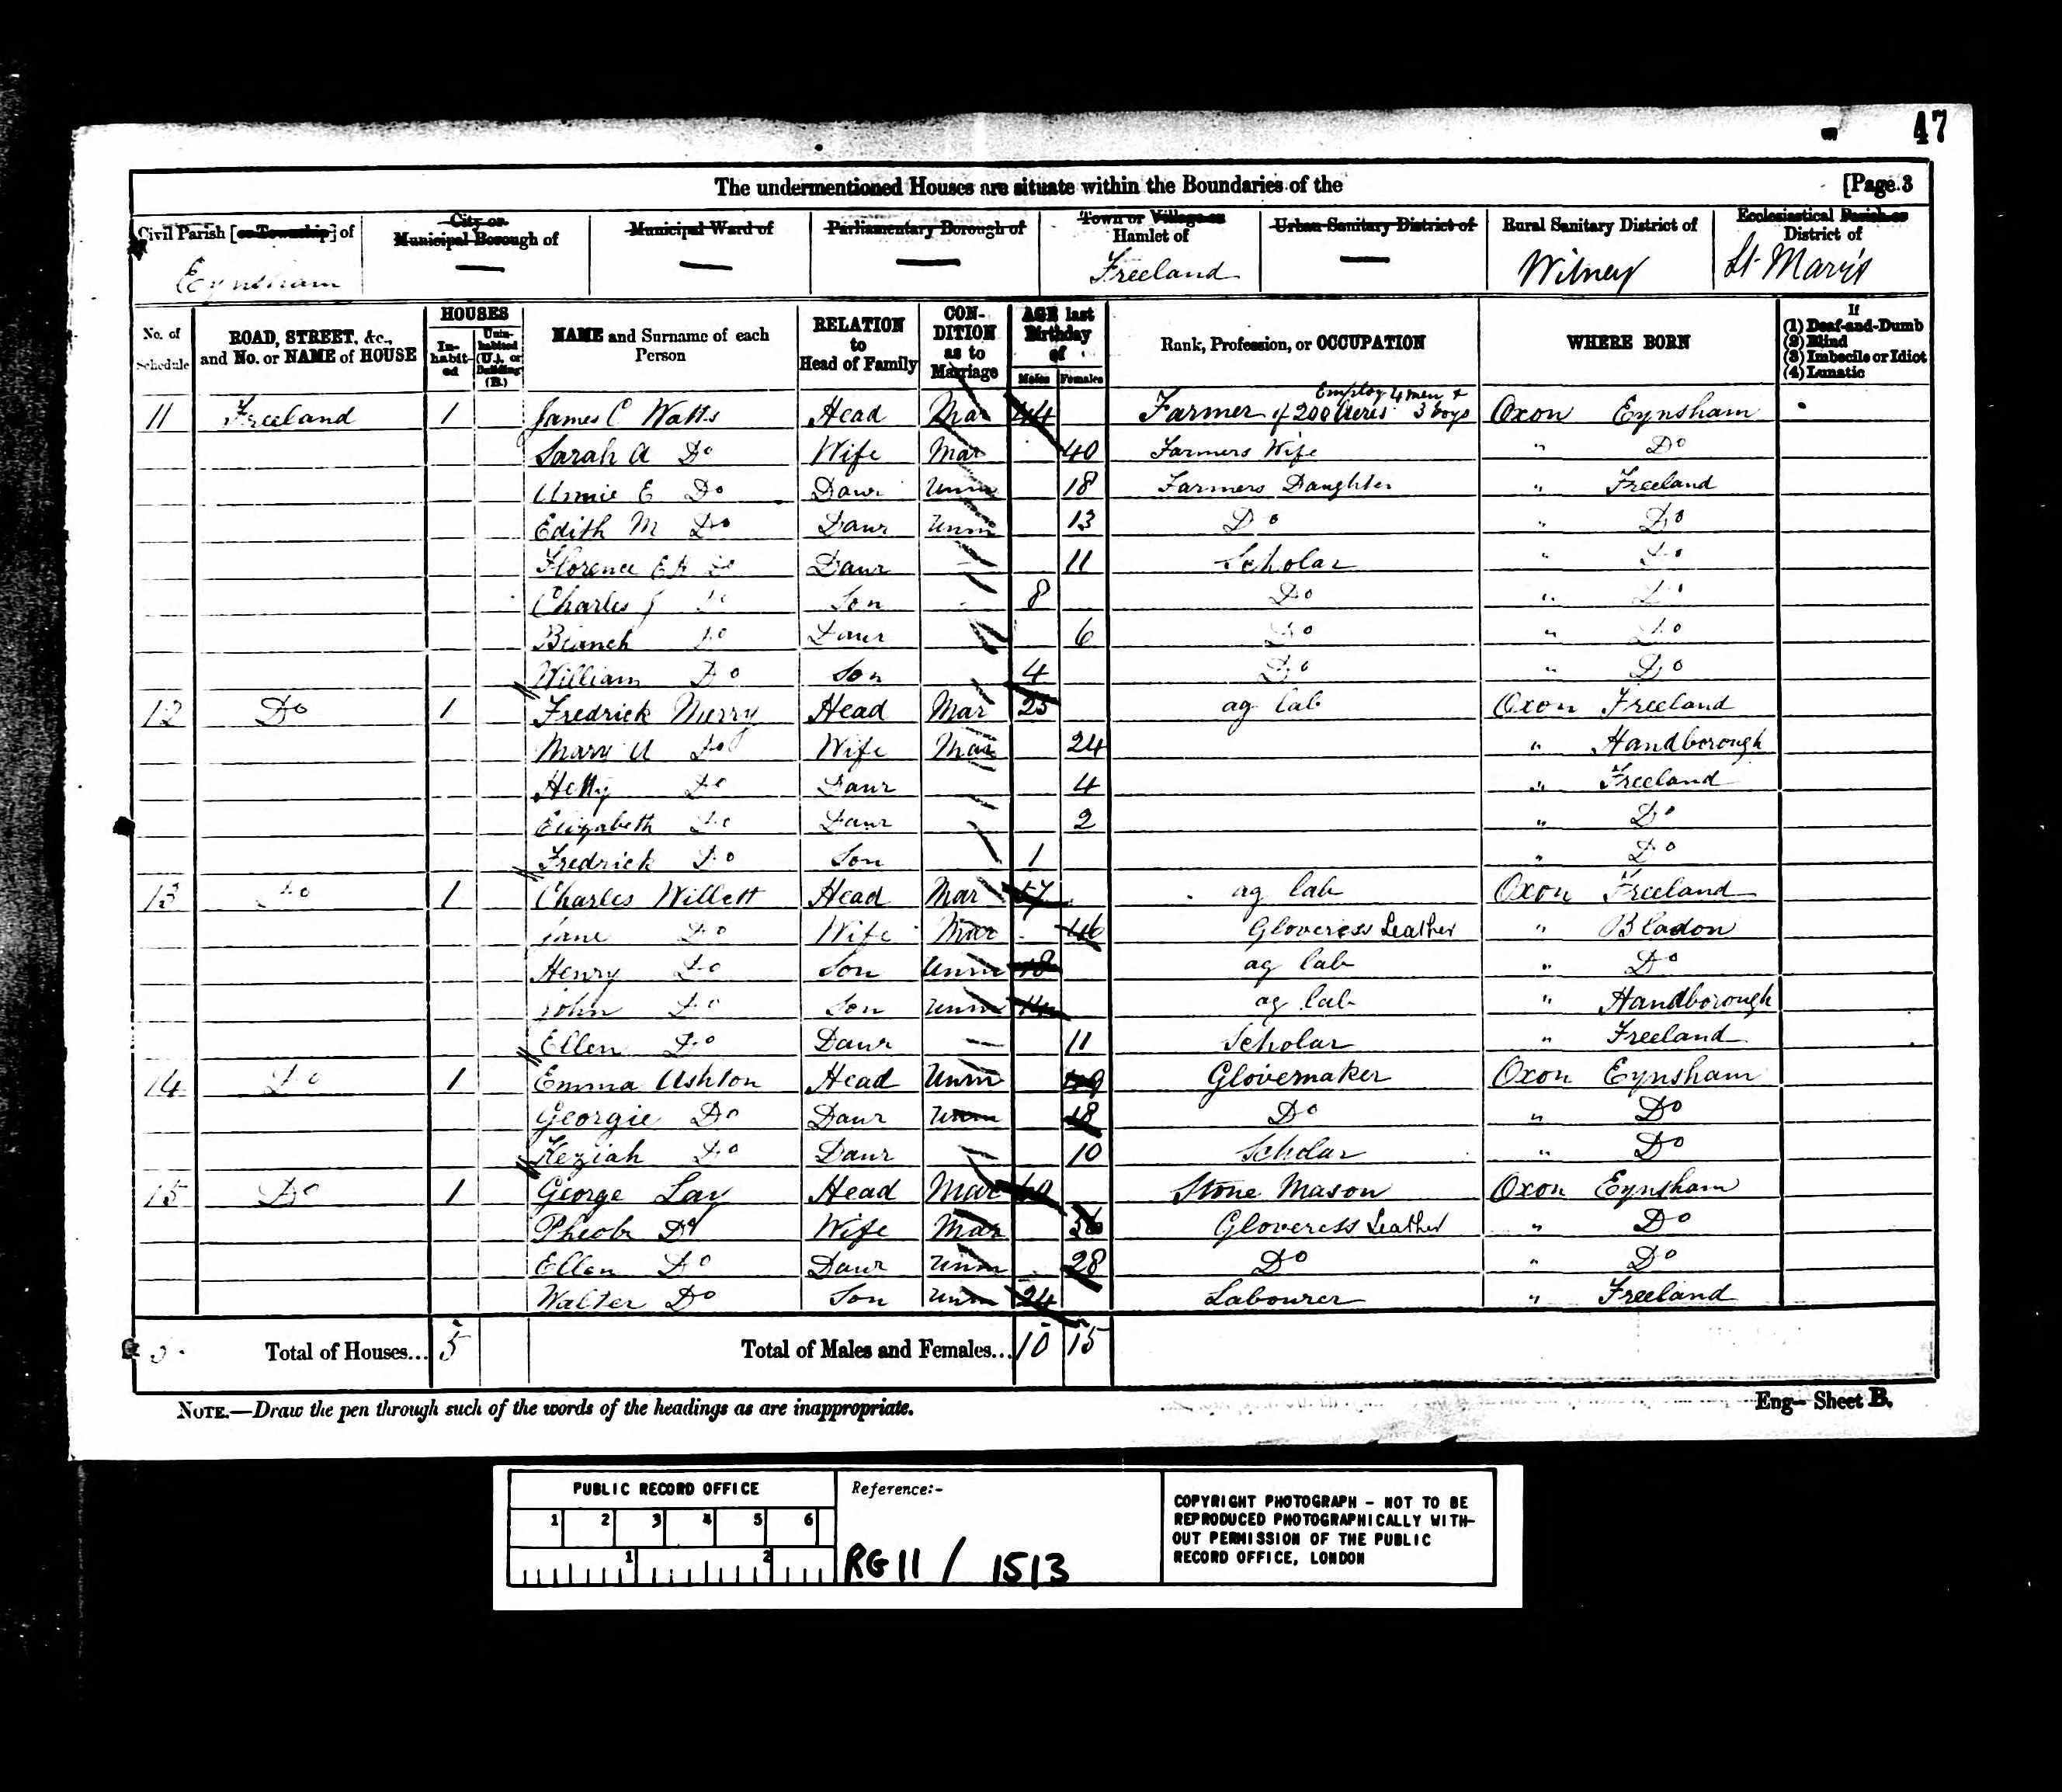 47
The undermentioned Houses are situate within the Boundaries of the [Page 3
Civil Parish [or Township] of Eynsham
City or Municipal Borough of —
Municipal Ward of —
Parliamentary Borough of —
Town or Village or Hamlet of Freeland
Urban Sanitary District of —
Rural Sanitary District of Witney
Ecclesiastical Parish or District of St Mary's
No. of Schedule
ROAD, STREET, &c., and No. or NAME of HOUSE
HOUSES
In-habit-ed
Unin-habited (U.), or Building (B.)
NAME and Surname of each Person
RELATION to Head of Family
CON-DITION as to Marriage
AGE last Birthday of
Males Females
Rank, Profession, or OCCUPATION
WHERE BORN
If
(1) Deaf-and-Dumb
(2) Blind
(3) Imbecile or Idiot
(4) Lunatic
11 Freeland 1 James C Watts Head Mar 44 Farmer of 200 Acres Employ 4 men & 3 boys Oxon Eynsham
Sarah A Do Wife Mar 40 Farmers Wife " Do
Annie E Do Daur Unm 18 Farmers Daughter " Freeland
Edith M Do Daur Unm 13 Do " Do
Florence Do Daur — 11 Scholar " Do
Charles J Do Son 8 Do " Do
Blanch Do Daur 6 Do " Do
William Do Son 4 Do " Do
12 Do 1 Fredrick Merry Head Mar 25 ag lab Oxon Freeland
Mary A Do Wife Mar 24 " Handborough
Hetty Do Daur 4 " Freeland
Elizabeth Do Daur 2 " Do
Fredrick Do Son 1 " Do
13 Do 1 Charles Willett Head Mar ag lab Oxon Freeland
Jane Do Wife Mar 46 Gloveress Leather " Bladon
Henry Do Son Unm 18 ag lab " Do
John Do Son Unm 14 ag lab " Handborough
Ellen Do Daur — 11 Scholar " Freeland
14 Do 1 Emma Ashton Head Unm Glovemaker Oxon Eynsham
Georgie Do Daur Unm 18 Do " Do
Keziah Do Daur 10 Scholar " Do
15 Do 1 George Lay Head Mar Stone Mason Oxon Eynsham
Pheobe Do Wife Mar 56 Gloveress Leather " Do
Ellen Do Daur Unm 28 Do " Do
Walter Do Son Unm 24 Labourer " Freeland
Total of Houses... 5 Total of Males and Females... 10 15
NOTE.—Draw the pen through such of the words of the headings as are inappropriate.
Eng— Sheet B.
PUBLIC RECORD OFFICE
1 2 3 4 5 6
1 2
Reference:-
RG 11 / 1513
COPYRIGHT PHOTOGRAPH - NOT TO BE
REPRODUCED PHOTOGRAPHICALLY WITH-
OUT PERMISSION OF THE PUBLIC
RECORD OFFICE, LONDON